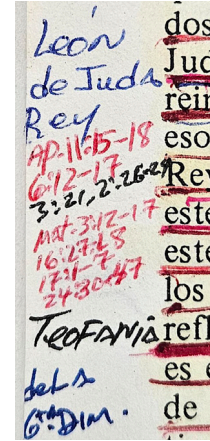 León
de Juda
Rey
AP-11:15-18
6:12-17
3:21, 2:26-29
Mat-3:12-17
16:27-28
17:1-7
24:30-47
TEOFANIA
de la
6ta DIM.
dos
Jud
rein
eso
Rev
este
este
los
refl
es
de